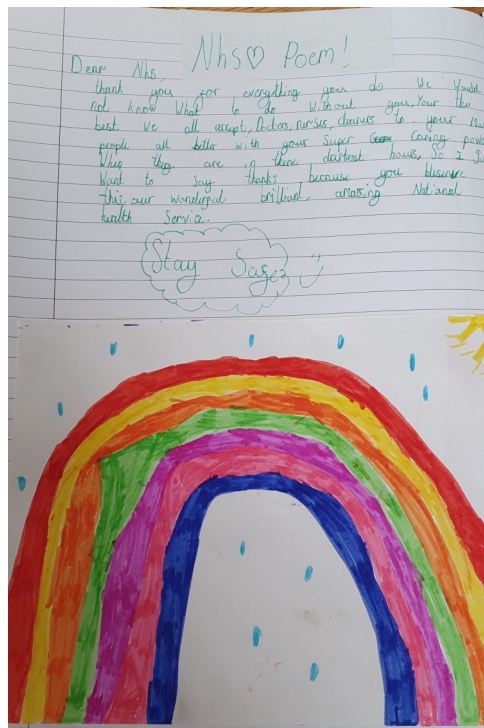 Nhs♡ Poem!
Dear Nhs,
thank you for everything you do We Would
not know What to do Without you, Your the
best We all accept, Doctors, nurses, cleaners to your
people all better with your super Caring
When they are in there darkest hours, So I
Want to say thanks because you
this, our wonderful brilliant, amazing National
health Service.
Stay Safe